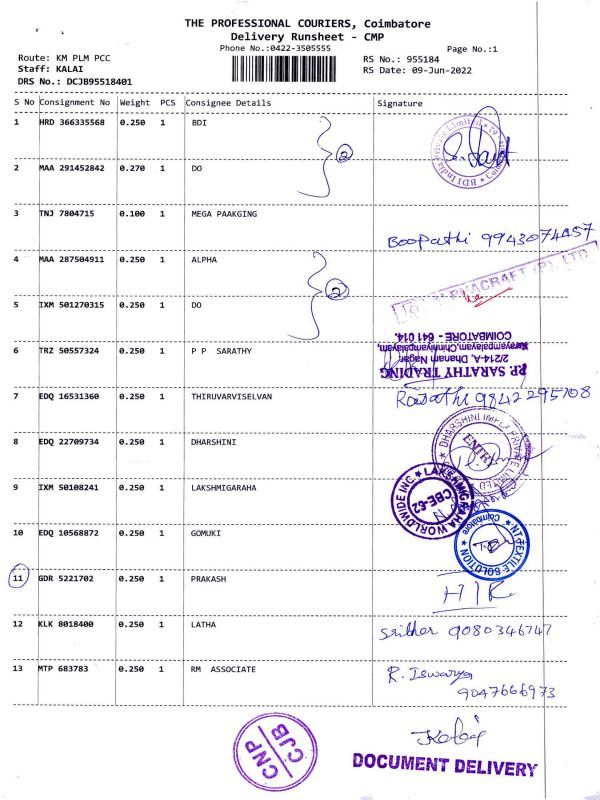 THE PROFESSIONAL COURIERS, Coimbatore
Delivery Runsheet - CMP
Phone No.:0422-3505555
Page No.:1
Route: KM PLM PCC
RS No.: 955184
Staff: KALAI
RS Date: 09-Jun-2022
DRS No.: DCJB95518401
S No Consignment No Weight PCS Consignee Details Signature
1 HRD 366335568 0.250 1 BDI
2
BDI India Private Limited
2 MAA 291452842 0.270 1 DO
3 TNJ 7804715 0.100 1 MEGA PAAKGING
Boopathi 9943074457
4 MAA 287504911 0.250 1 ALPHA
ALPHACRAFT (P) LTD
2
5 IXM 501270315 0.250 1 DO
6 TRZ 50557324 0.250 1 P P SARATHY
PP SARATHY TRADING
2/214-A, Dhanam Nagar,
COIMBATORE - 641 014.
7 EDQ 16531360 0.250 1 THIRUVARVISELVAN
9842295108
8 EDQ 22709734 0.250 1 DHARSHINI
DHARSHINI IMPEX PRIVATE LIMITED
ENTRY
9 IXM 50108241 0.250 1 LAKSHMIGARAHA
LAKSHMIGARAHA WORLDWIDE INC
CBE-62
10 EDQ 10568872 0.250 1 GOMUKI
Coimbatore
11 GDR 5221702 0.250 1 PRAKASH
12 KLK 8018400 0.250 1 LATHA
Sridher 9080346747
13 MTP 683783 0.250 1 RM ASSOCIATE
R. Iswarya
9047666973
CNP
CJB
Kalai
DOCUMENT DELIVERY